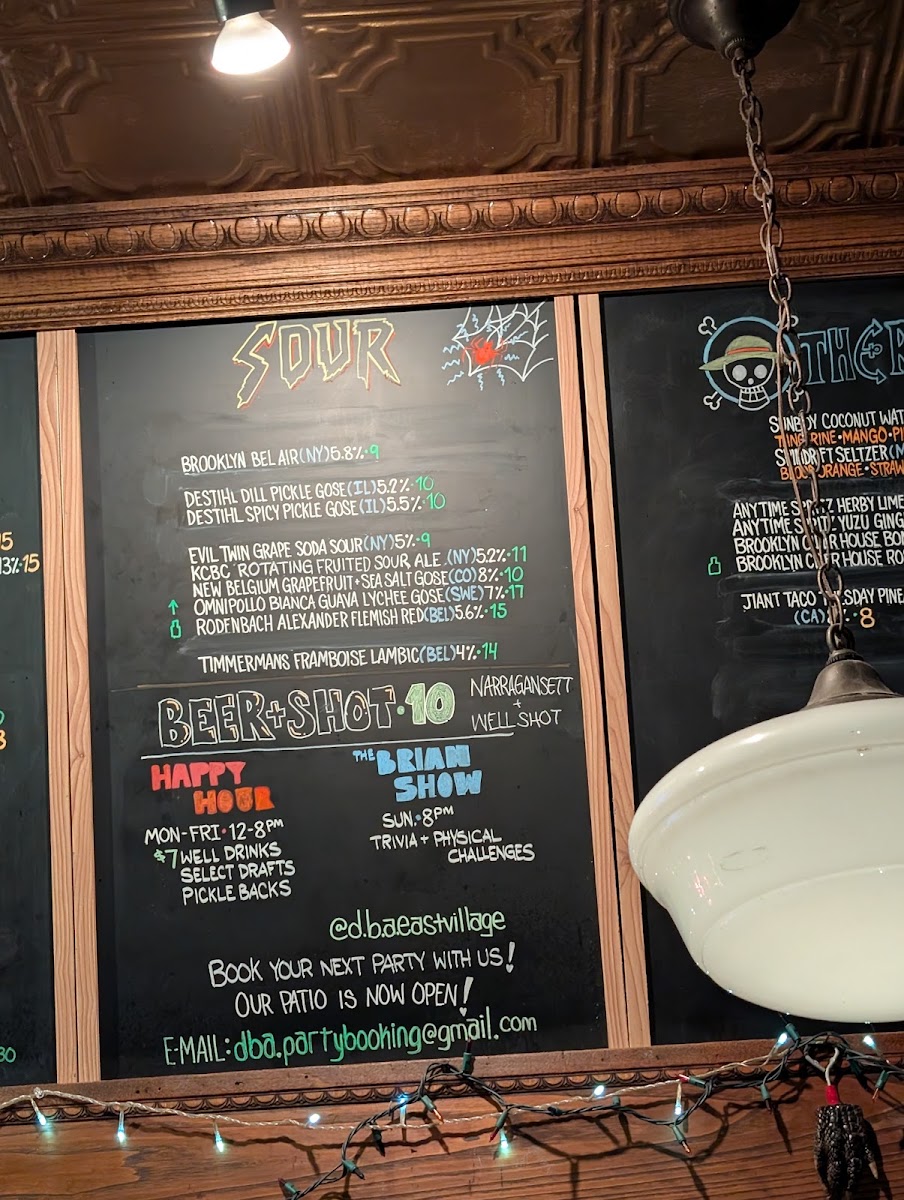 SOUR
BROOKLYN BEL AIR (NY) 5.8%·9
DESTIHL DILL PICKLE GOSE (IL) 5.2%·10
DESTIHL SPICY PICKLE GOSE (IL) 5.5%·10
EVIL TWIN GRAPE SODA SOUR (NY) 5%·9
KCBC "ROTATING FRUITED SOUR ALE" (NY) 5.2%·11
NEW BELGIUM GRAPEFRUIT + SEA SALT GOSE (CO) 8%·10
OMNIPOLLO BIANCA GUAVA LYCHEE GOSE (SWE) 7%·17
RODENBACH ALEXANDER FLEMISH RED (BEL) 5.6%·15
TIMMERMANS FRAMBOISE LAMBIC (BEL) 4%·14
BEER + SHOT·10
NARRAGANSETT
+
WELL SHOT
HAPPY
HOUR
MON-FRI·12-8PM
$7 WELL DRINKS
SELECT DRAFTS
PICKLE BACKS
THE BRIAN
SHOW
SUN.·8PM
TRIVIA + PHYSICAL
CHALLENGES
@d.b.a.eastvillage
BOOK YOUR NEXT PARTY WITH US!
OUR PATIO IS NOW OPEN!
E-MAIL: dba.partybooking@gmail.com
5
13%·15
8
30
OTHER
COCONUT
MANGO
SELTZER
ORANGE
ANYTIME HERBY LIME
ANYTIME YUZU
BROOKLYN HOUSE
BROOKLYN HOUSE
JIANT TACO
(CA) 8